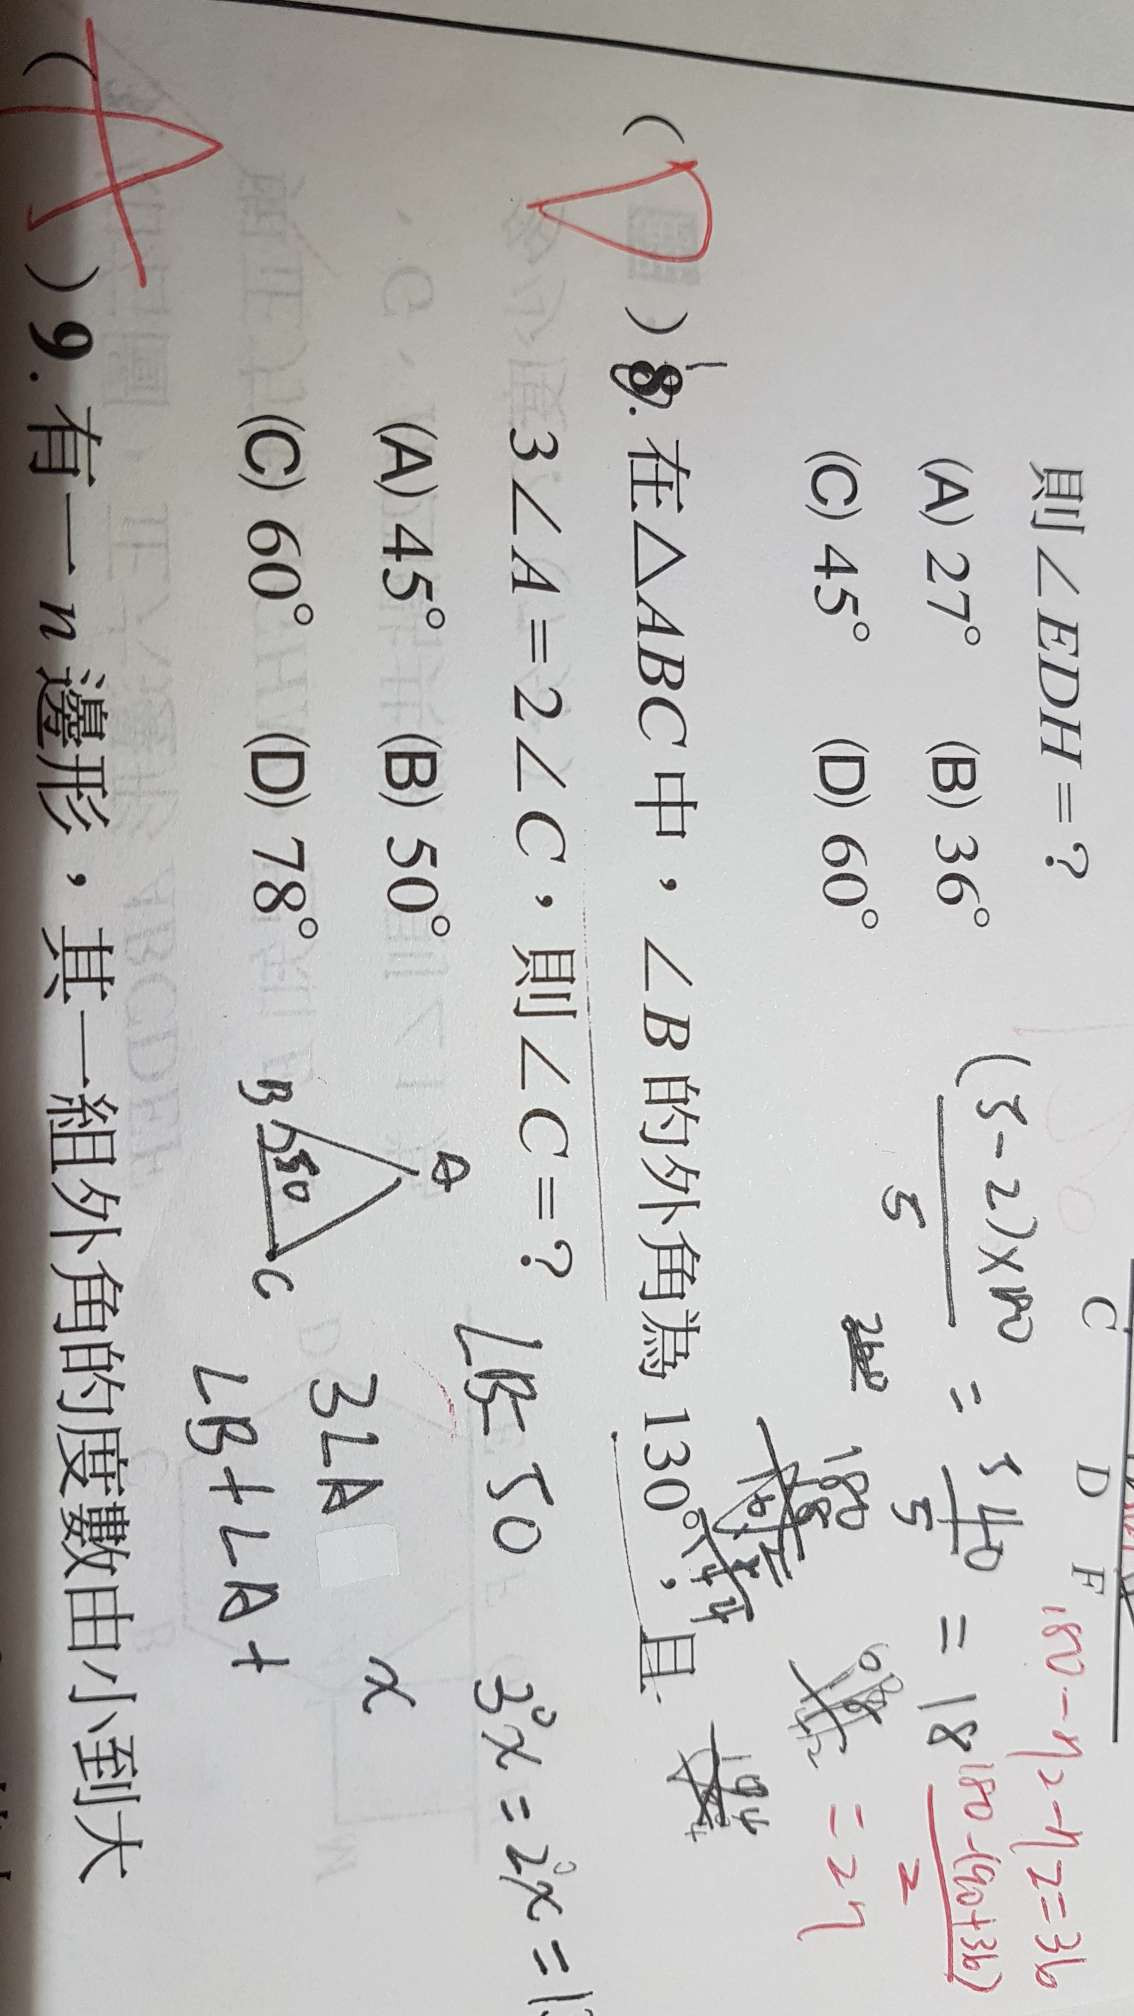 C D F
則∠EDH=?
(A) 27° (B) 36°
(C) 45° (D) 60°
(5-2)×180
5
= 540
5
= 18
180
180-72-72=36
180-(90+36)
2
=27
(D) 8. 在△ABC中，∠B的外角為130°，且
3∠A=2∠C，則∠C=?
(A) 45° (B) 50°
(C) 60° (D) 78°
A
B 50 C
∠B= 50
3x=2x=1
3∠A x
∠B+∠A+
(A) 9. 有一n邊形，其一組外角的度數由小到大